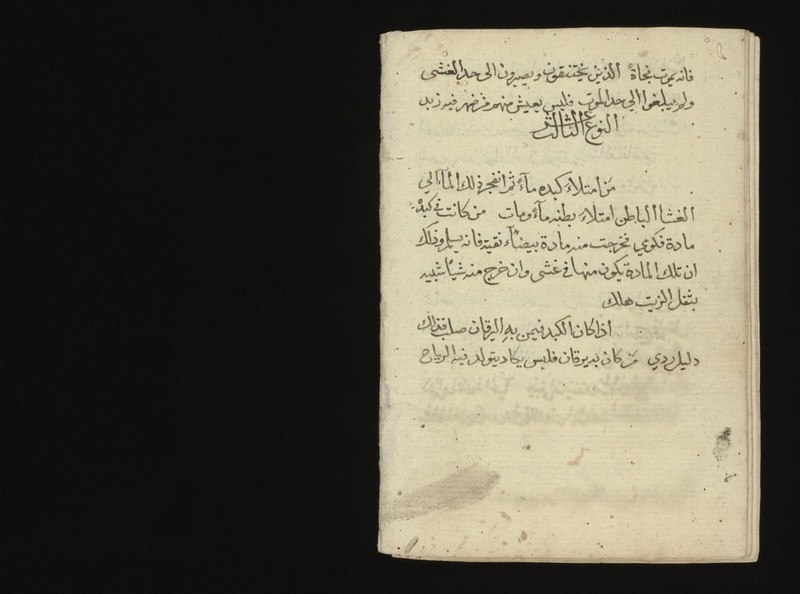 فانه يموت فجاة الذين يختنقون ويصيرون الى حد الغشى
ولم يبلغوا الي حد الموت فليس يعيش منهم من ظهر فيه زبد
النوع الثالث
من امتلاء كبده مآء ثم انفجر ذلك المآ الي
الغشا الباطن امتلاء بطنه مآء ومات من كانت في كبده
مادة فكوي فخرجت منه مادة بيضآء نقية فانه يسلم وذلك
ان تلك المادة يكون منها في غشى وان خرج منه شيأ شبيه
بثفل الزيت هلك
اذا كان الكبد فيمن به اليرقان صلب فذلك
دليل ردي من كان به يرقان فليس يكاد يتولد فيه الرياح